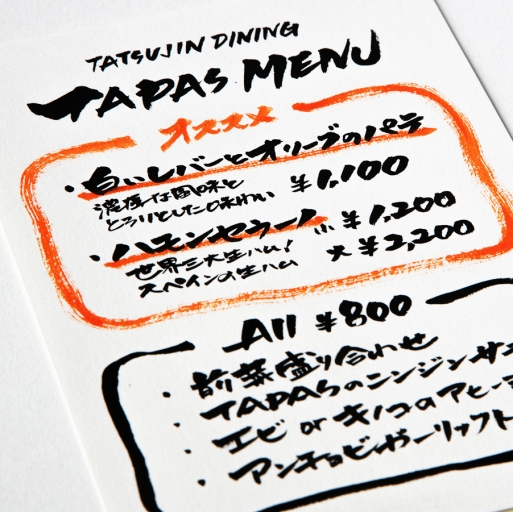 TATSUJIN DINING
TAPAS MENU
オススメ
・白いレバーとオリーブのパテ
濃厚な風味と
とろりとした口味わい ¥1,100
・ハモンセラーノ 小 ¥1,200
世界三大生ハム! 大 ¥2,200
スペインの生ハム
All ¥800
・前菜盛り合わせ
・TAPASのニンジンサ
・エビ or キノコのアヒー
・アンチョビガーリック